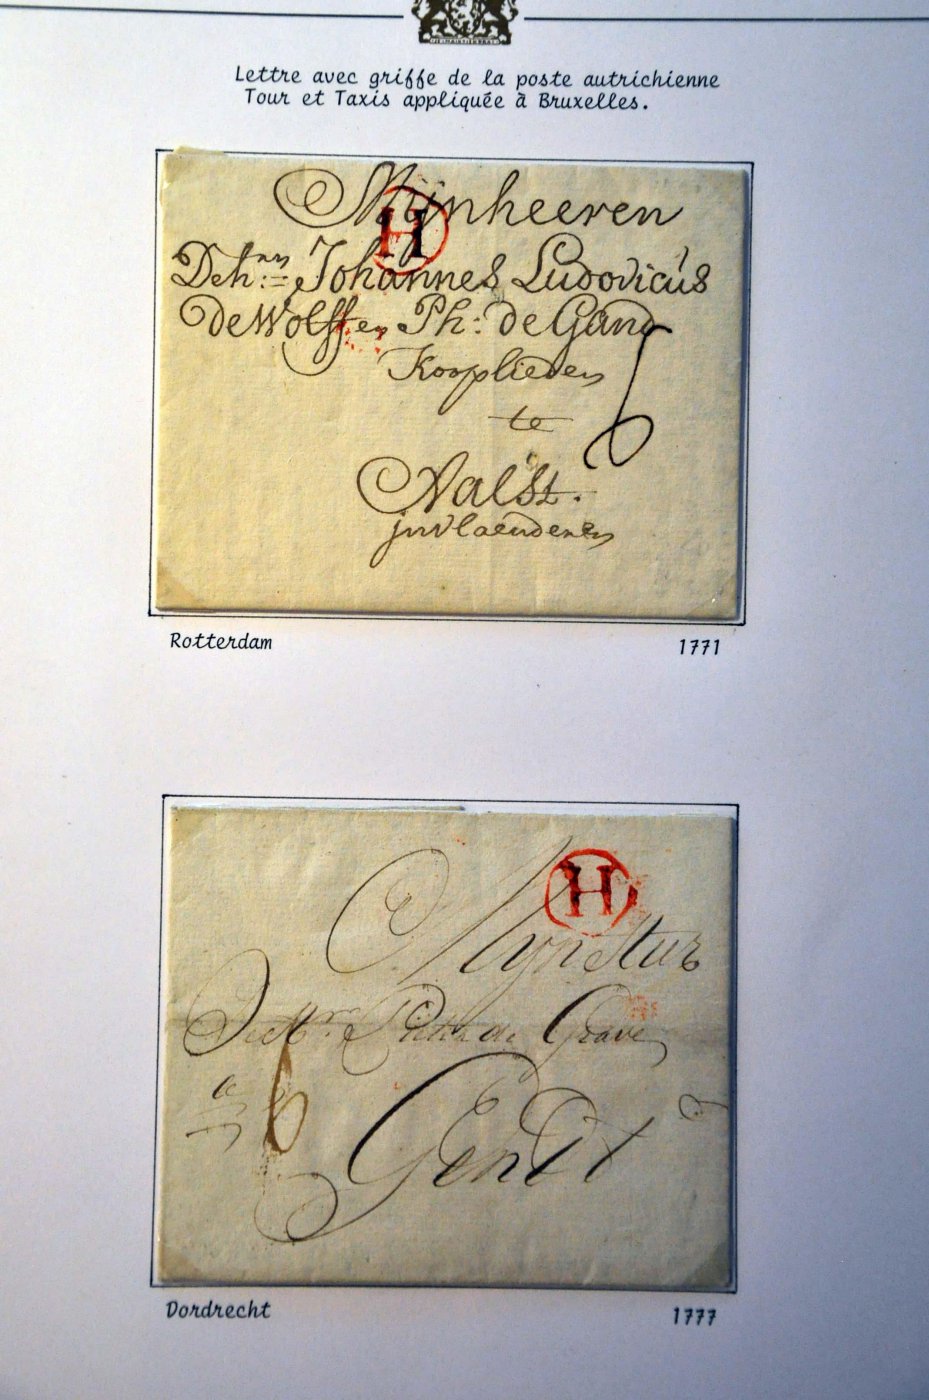 Lettre avec griffe de la poste autrichienne
Tour et Taxis appliquée à Bruxelles.
Mijnheeren
H
Dehrn Johannes Ludovicus
de Wolff en Ph: de Gand
Kooplieden
te
6
Aalst.
in vlaenderen
Rotterdam
1771
H
Mynheer
de Grave
6
Gendt
Dordrecht
1777